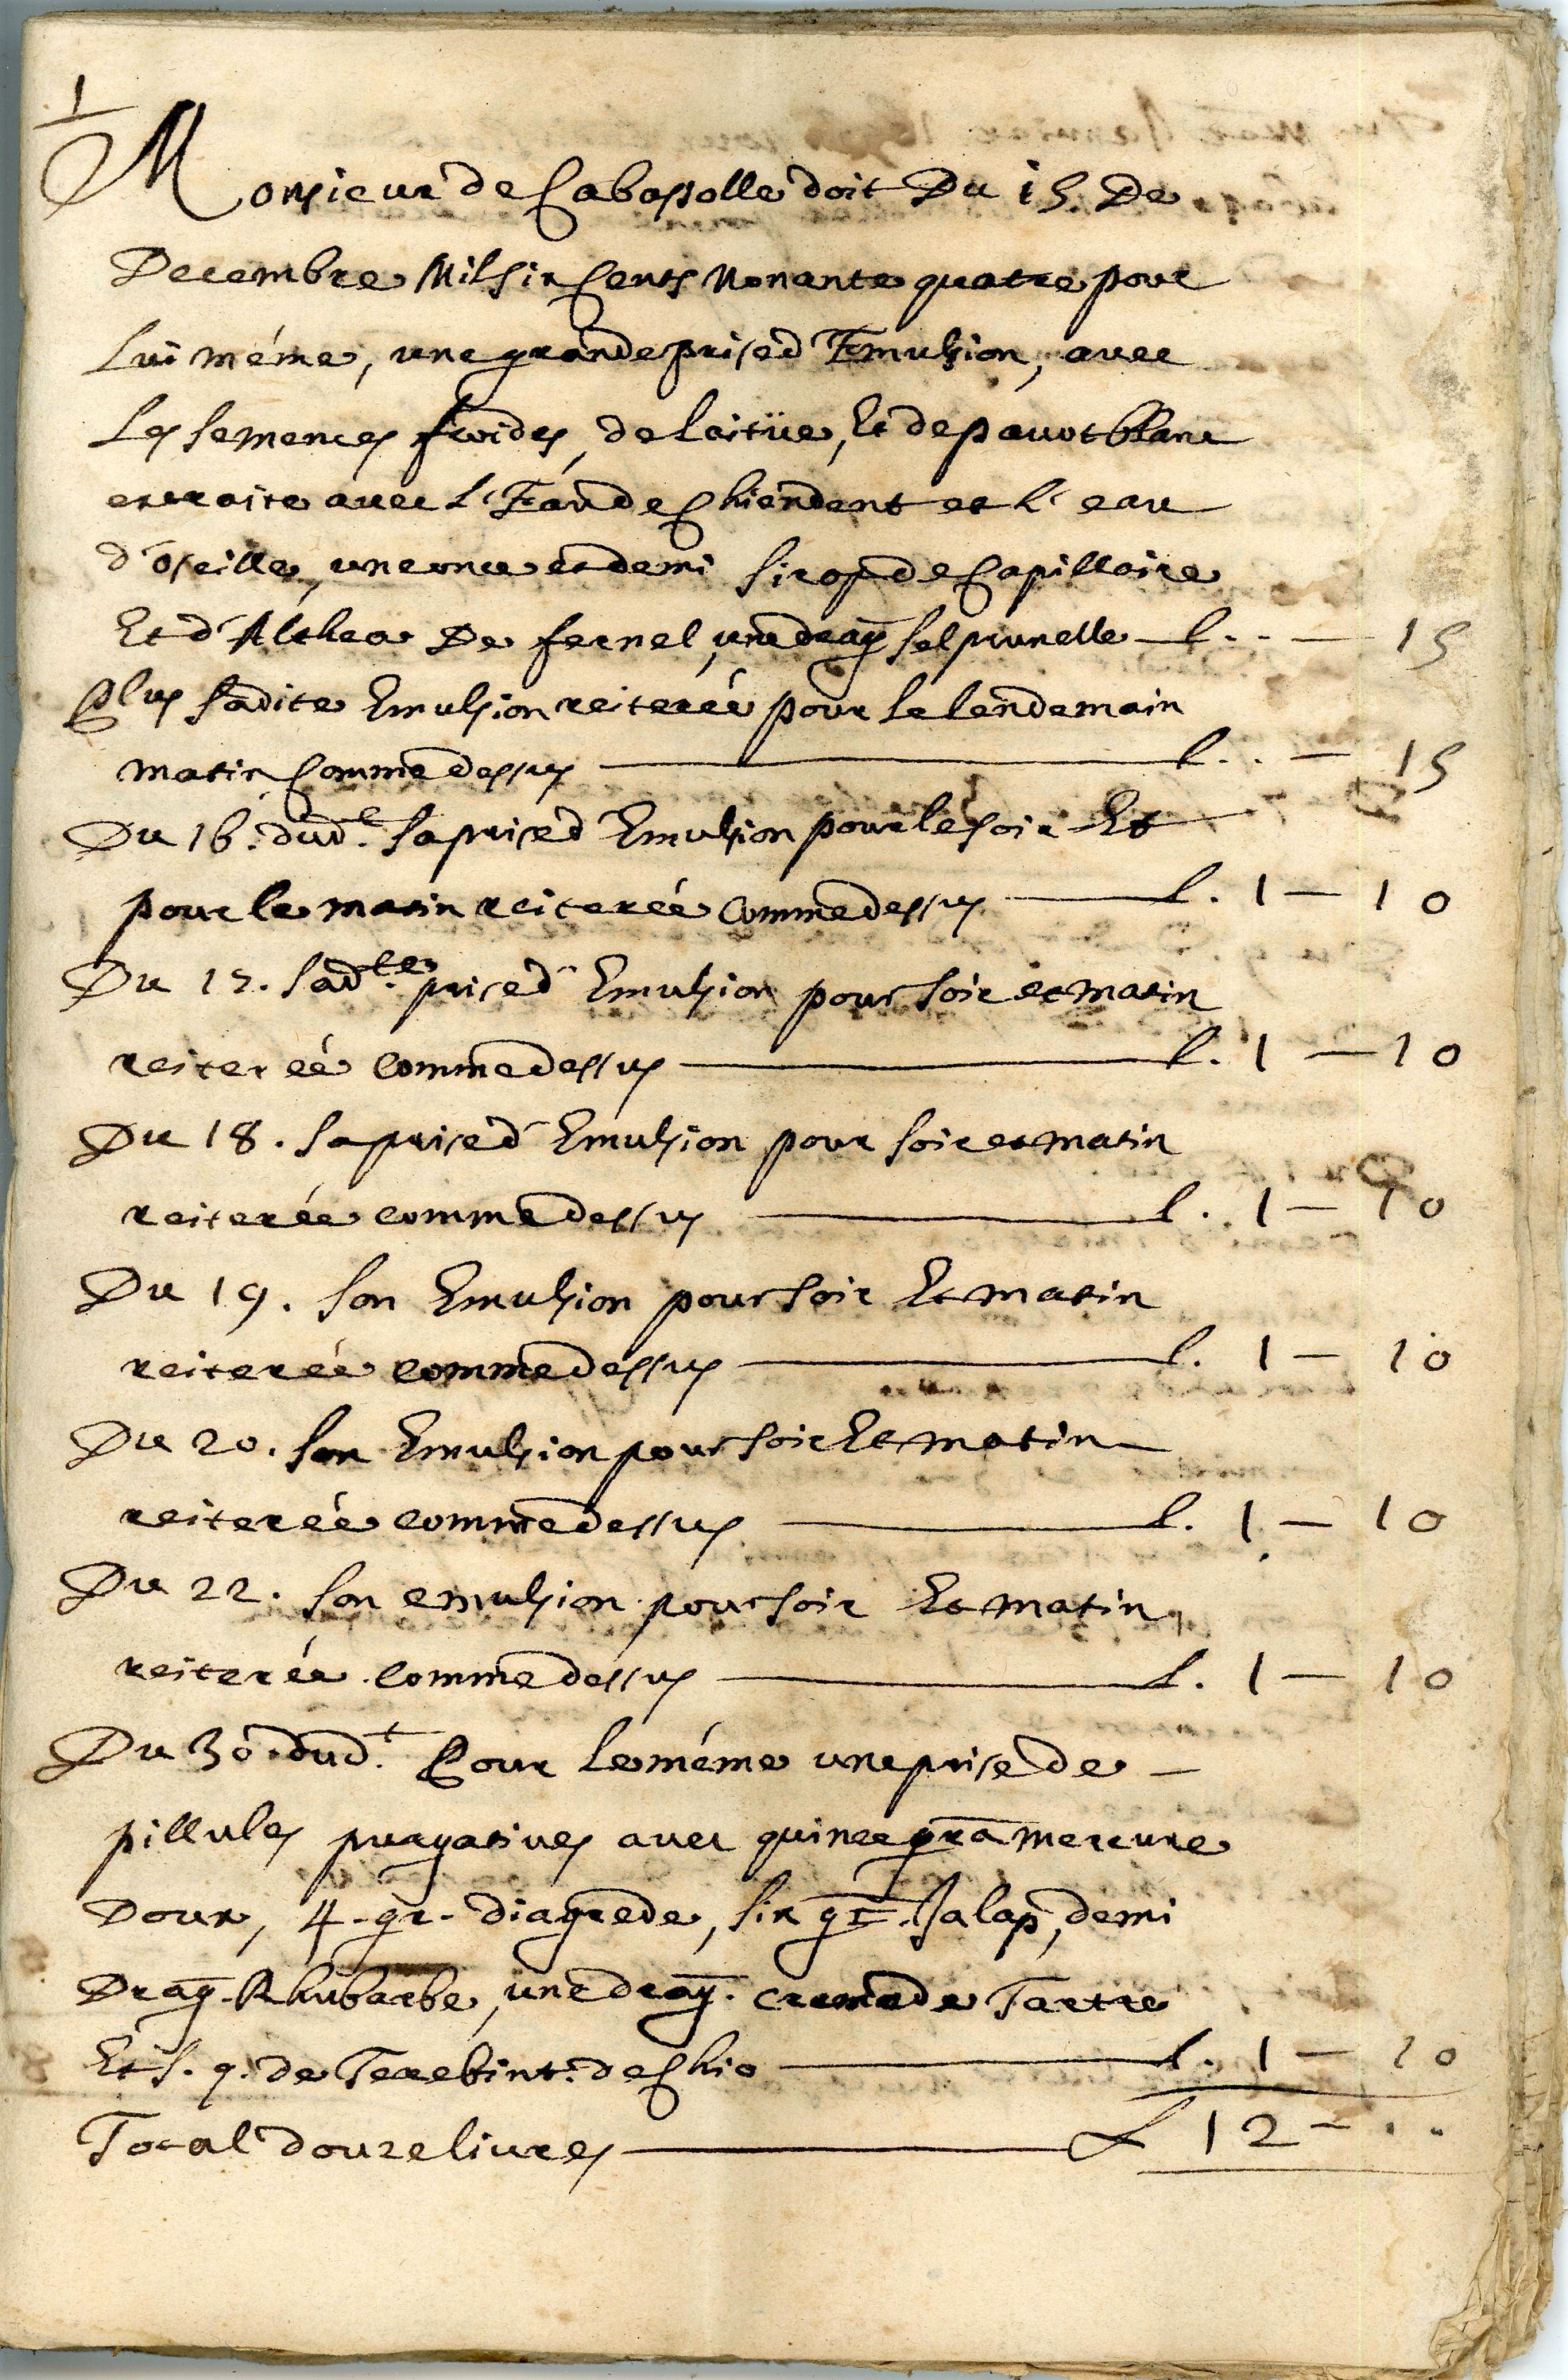 1
Monsieur de Cabassolle doit Du 15. De
Decembre Mil six Cents Nonante quatre pour
lui méme, une grande prise d'Emulsion, avec
les semences froides, de laitüe, Et de pavot blanc
extraite avec l'Eau de Chiendent et l'eau
d'oseille, une once et demi sirop de Capillaire
Et d'Althea De fernel, une drag̃ sel prunelle — l. .. — 15
Plus sadite Emulsion reiterée pour le lendemain
matin Comme dessus — l. .. — 15
Du 16. dud.t sa prise d'Emulsion pour le soir Et
pour le matin reiterée Comme dessus — l. 1 — 10
Du 17. sad.te prise d'Emulsion pour soir et matin
reiterée comme dessus — l. 1 — 10
Du 18. sa prise d'Emulsion pour soir et matin
reiterée comme dessus — l. 1 — 10
Du 19. son Emulsion pour soir Et matin
reiterée comme dessus — l. 1 — 10
Du 20. son Emulsion pour soir Et matin
reiterée comme dessus — l. 1 — 10
Du 22. son emulsion pour soir Et matin
reiterée comme dessus — l. 1 — 10
Du 30. dud.t Pour le méme une prise de
pillules purgatives avec quince grã mercure
Doux, 4. gr. diagrede, six gr. Jalap, demi
Drag̃. Rhubarbe, une drag̃. creme de Tartre
Et s. q. de Terebint. de Chio — l. 1 — 10
Total douze livres — L 12 — ..